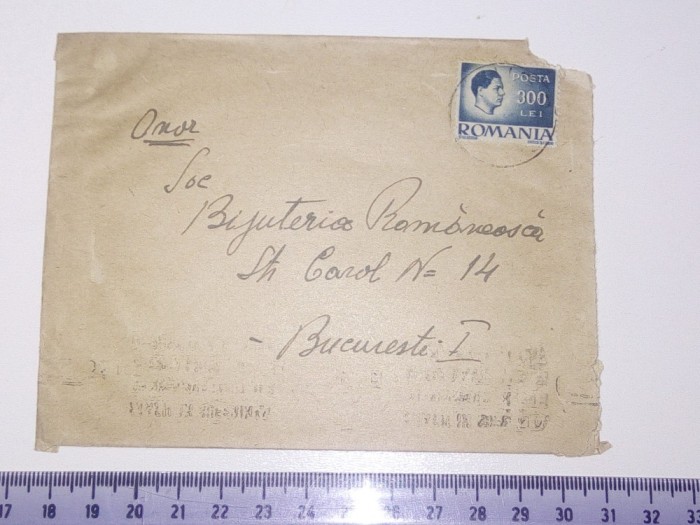 POSTA
300
LEI
ROMANIA
Onor
Soc
Bijuteria Românească
Str Carol N= 14
- Bucuresti I
17 18 19 20 21 22 23 24 25 26 27 28 29 30 31 32 33